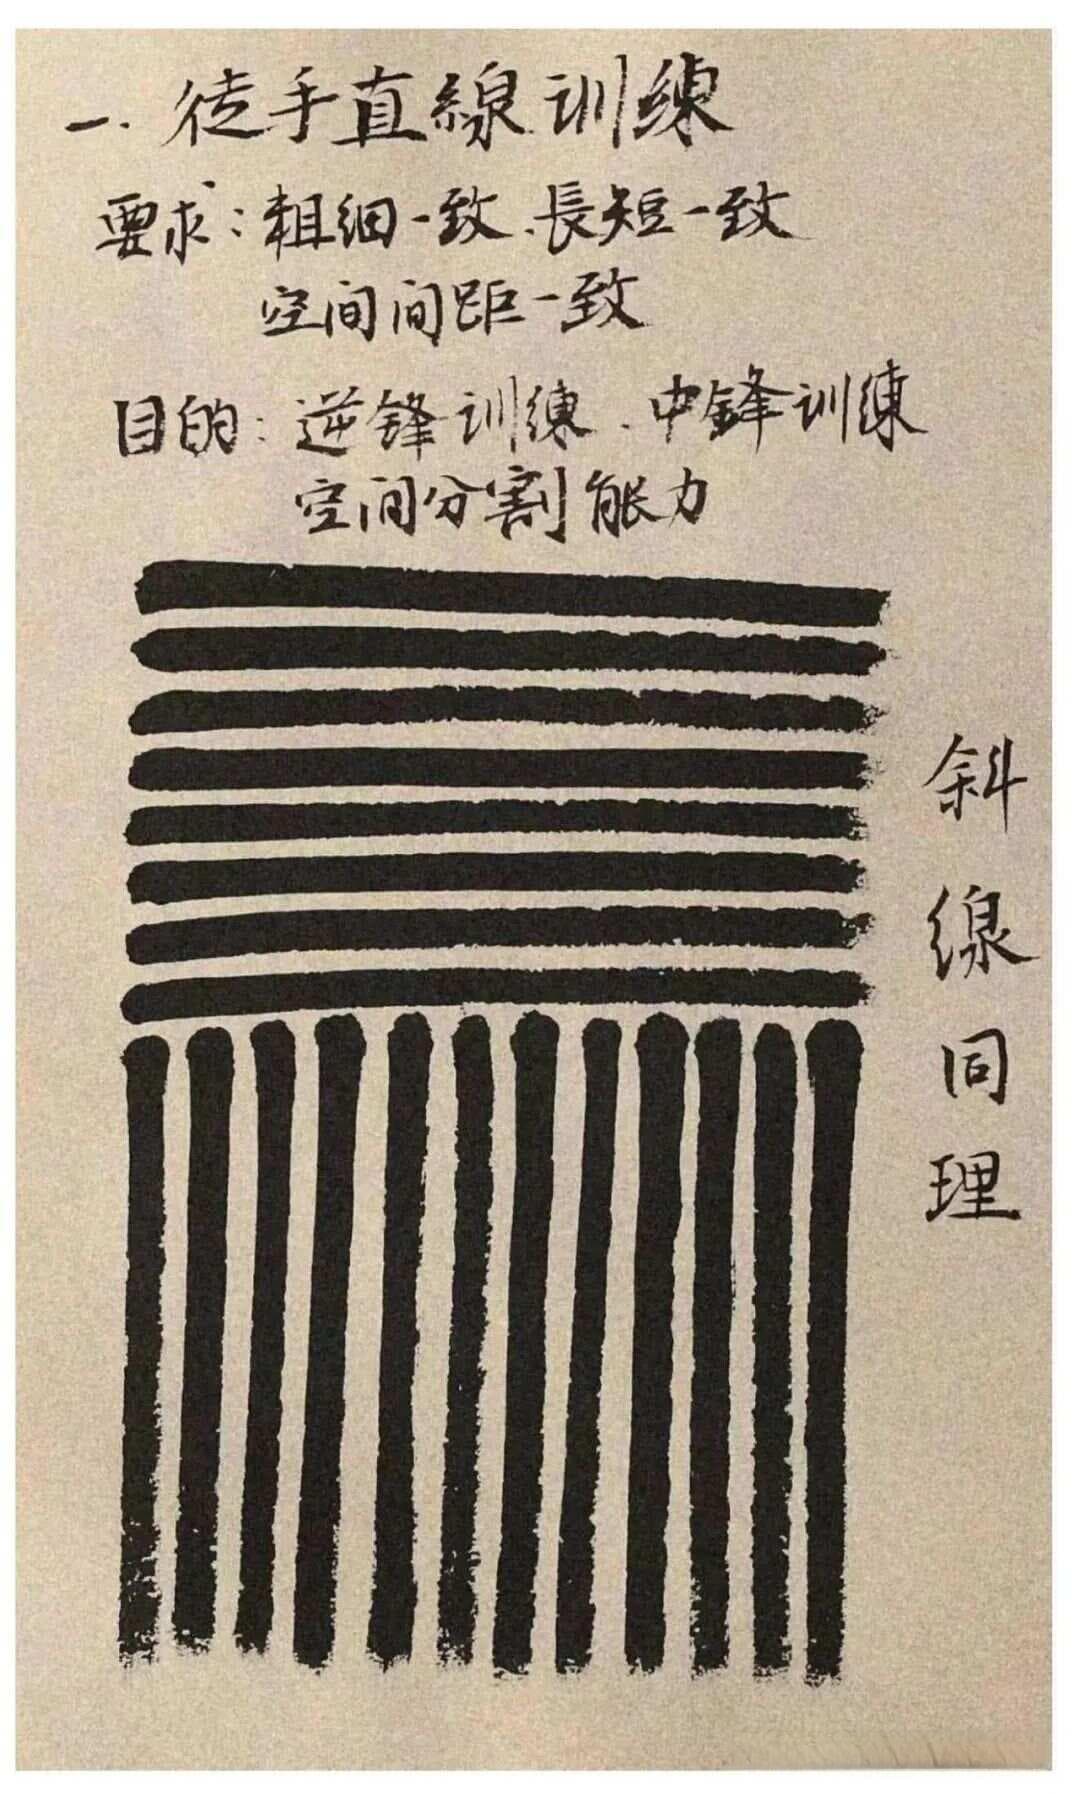 一.徒手直線训練
要求:粗细一致、長短一致
空间间距一致
目的:逆锋训練、中锋训練
空间分割能力
斜線同理